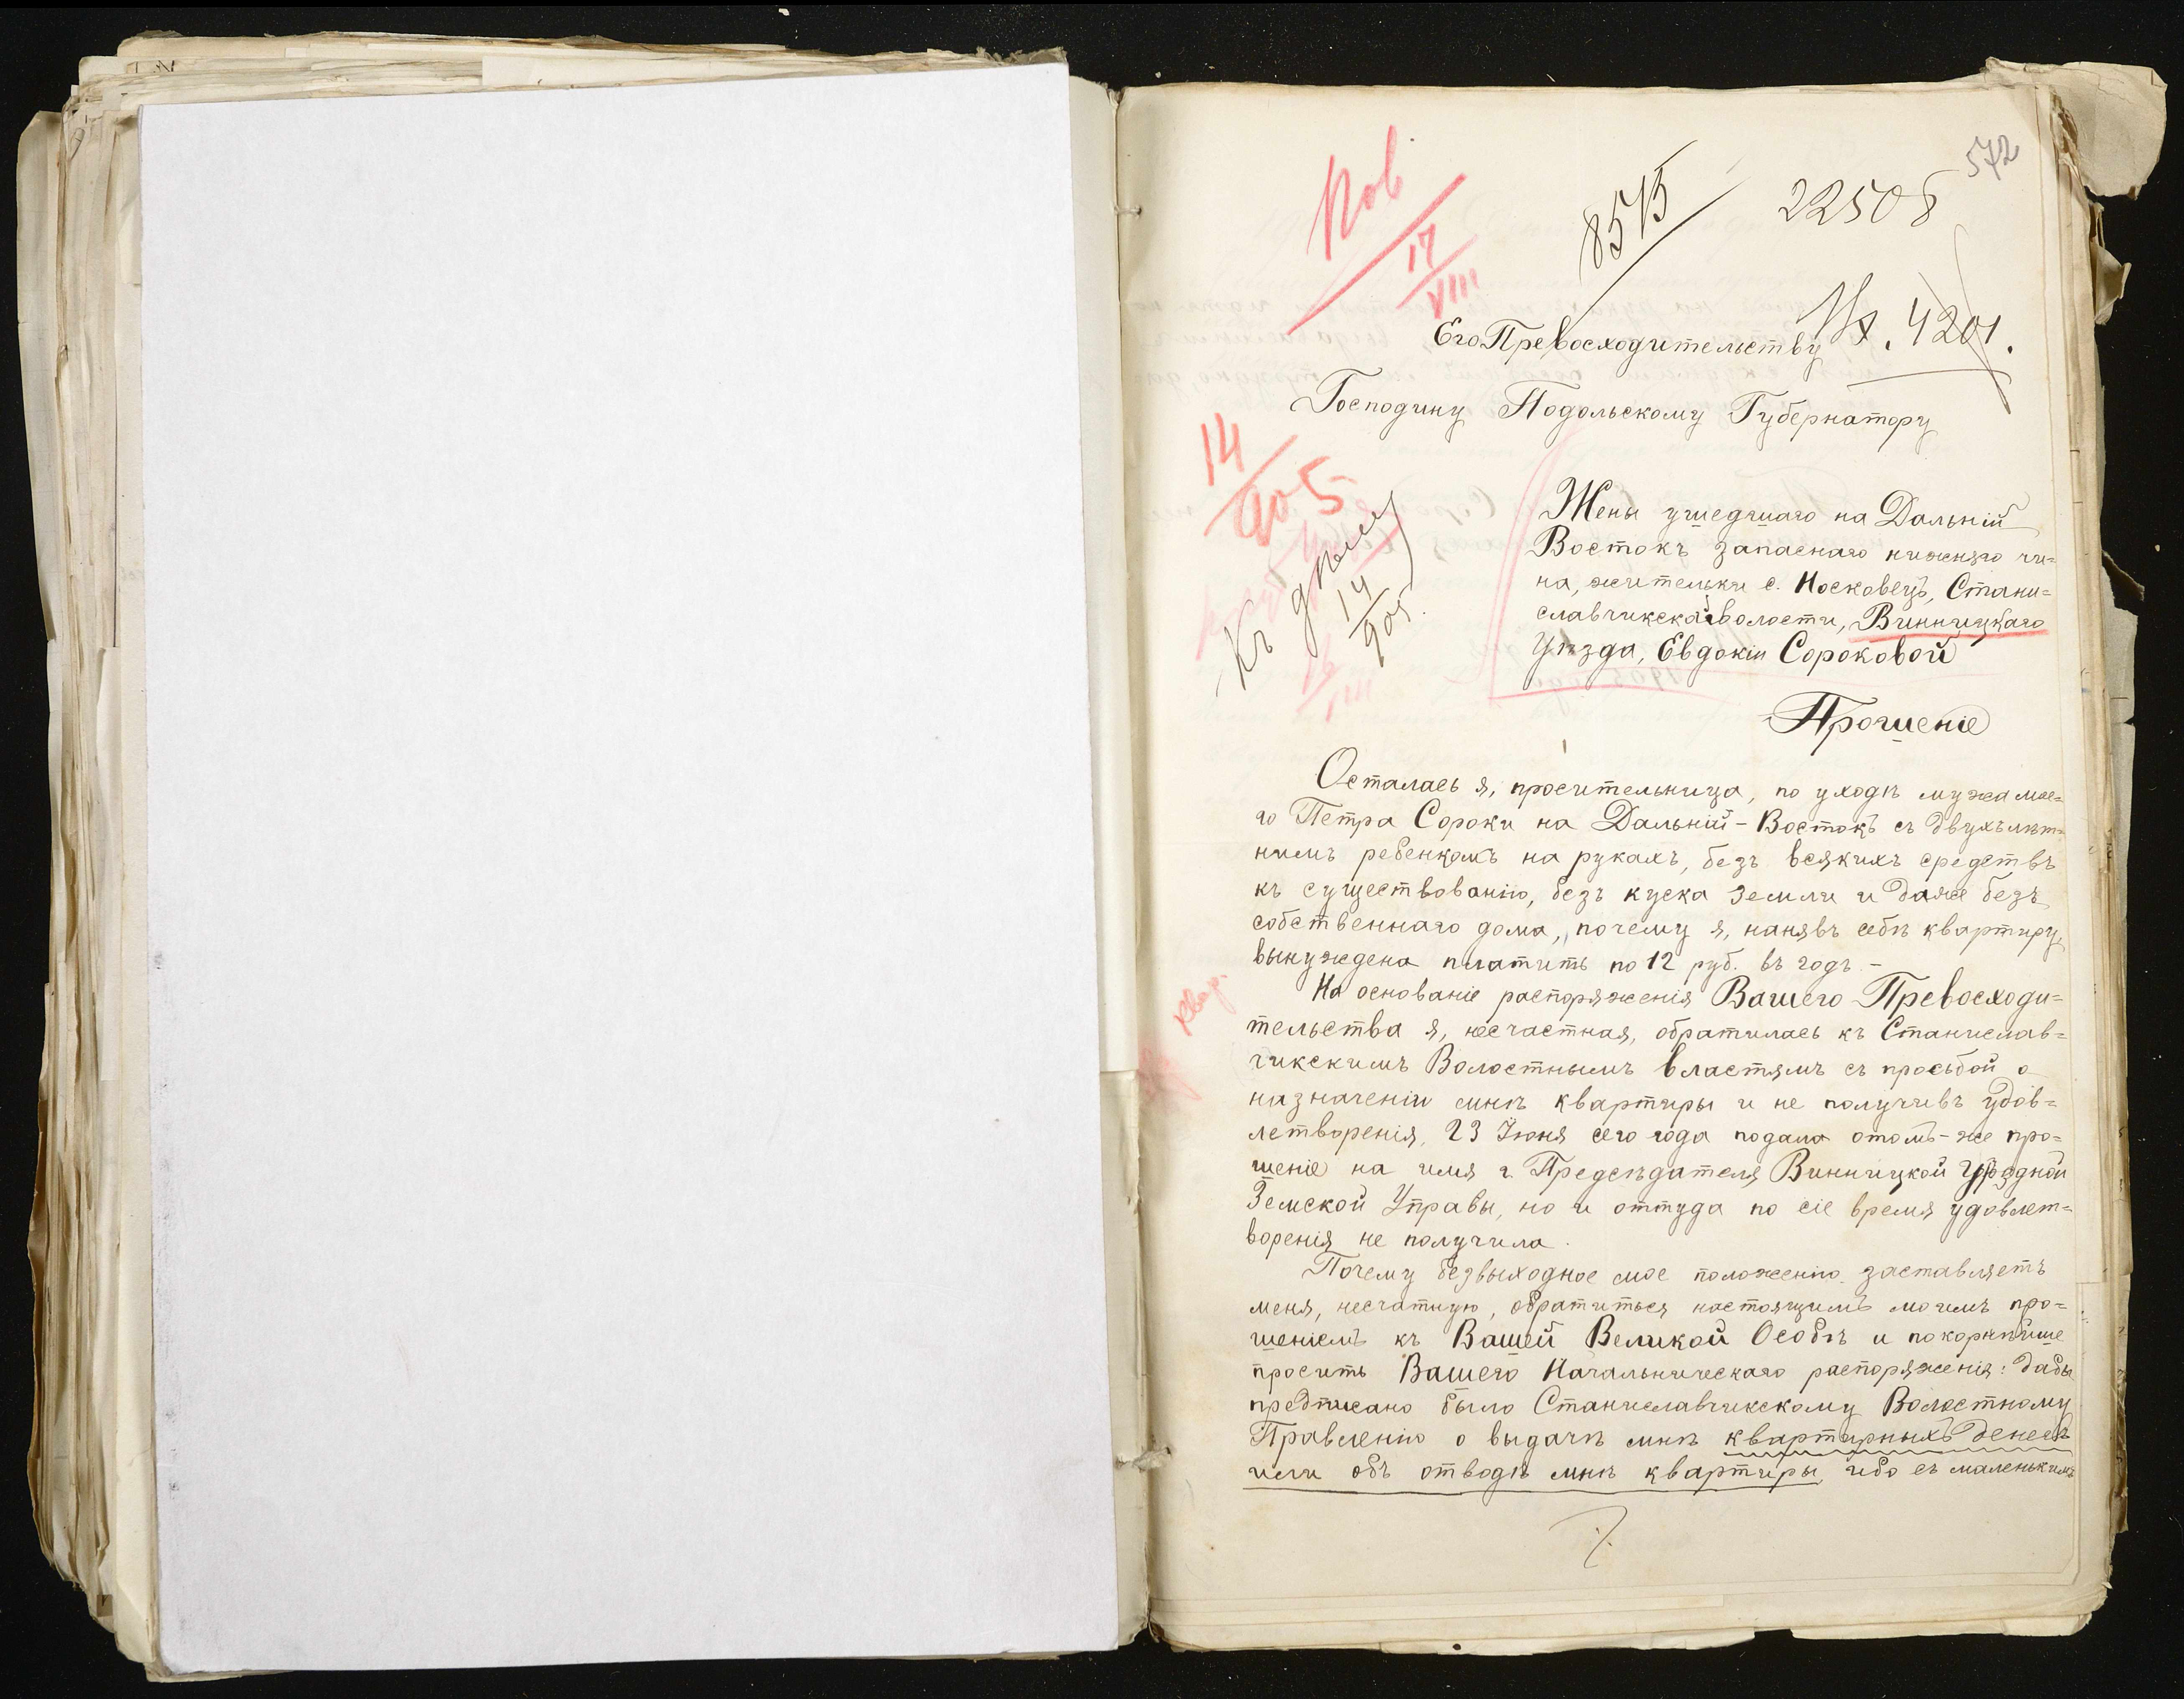 572
22508
8515
Ков
17
VIII
Вх. 4201.
Его Превосходительству
Господину Подольскому Губернатору
14
905
Къ дѣлу
14
905
Жены ушедшаго на Дальній
Востокъ запаснаго нижняго чи=
на, жительки с. Носковецъ, Стани=
славчикской волости, Винницкаго
Уѣзда, Евдокіи Сороковой
Прошеніе
Осталась я, просительница, по уходѣ мужа мое=
го Петра Сороки на Дальній-Востокъ съ двухълѣт=
нимъ ребенкомъ на рукахъ, безъ всякихъ средствъ
къ существованію, безъ куска земли и даже безъ
собственнаго дома, почему я, нанявъ себѣ квартиру,
вынуждена платить по 12 руб. въ годъ.-
На основаніе распоряженія Вашего Превосходи=
тельства я, несчастная, обратилась къ Станислав=
чикскимъ Волостнымъ властямъ съ просьбой о
назначеніи мнѣ квартиры и не получивъ удов=
летворенія, 23 Іюня сего года подала отомъ-же про=
шеніе на имя г. Предсѣдателя Винницкой Уѣздной
Земской Управы, но и оттуда по сіе время удовлет=
воренія не получила.
Почему безвыходное мое положенію заставляетъ
меня, несчатную, обратиться настоящимъ моимъ про=
шеніемъ къ Вашей Великой Особѣ и покорнѣйше
просить Вашего Начальническаго распоряженія: дабы
предписано было Станиславчикскому Волостному
Правленію о выдачѣ мнѣ квартирныхъ денегъ
или объ отводѣ мнѣ квартиры, ибо съ маленькимъ